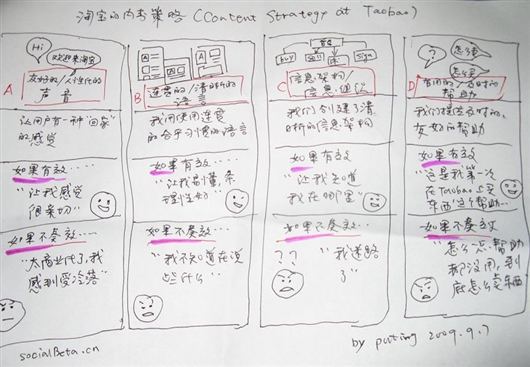 淘宝的内容策略 (Content Strategy at Taobao)
Hi
欢迎来淘宝
A
友好的/人性化的
声音
让用户有一种“回家”
的感觉
如果有效……
“让我感觉
很亲切”
如果不奏效……
“太商业化了,我
感到受冷落”
B
连贯的/清晰的
语言
我们使用连贯
的合乎习惯的语言
如果有效……
“让我看懂,条
理性好”
如果不奏效……
“我不知道在说
些什么”
首页
buy
sell
sign
C
信息架构/
信息
我们创建了清
晰的信息架构
如果有效
“让我知道
我在哪里”
如果不奏效……
??
“我迷路
了”
?
怎么买
怎么卖
D
有用的/及时的
帮助
我们提供及时的,
友好的帮助
如果有效
“这是我第一次
在Taobao上买
东西,这个帮助…
如果不奏效
“怎么点帮助
都没用,到
底怎么卖东西
socialBeta.cn
by puting 2009.9.7